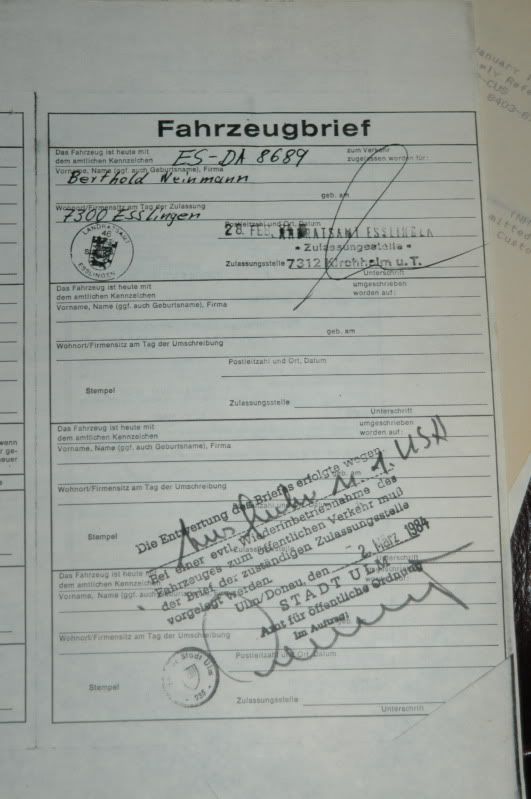 January
nly Refe
-CUS
8403-8
Fahrzeugbrief
Das Fahrzeug ist heute mit
dem amtlichen Kennzeichen
ES-DA 8689
zum Verkehr
zugelassen worden für:
Vorname, Name (ggf. auch Geburtsname), Firma
Berthold Weinmann
geb. am
Wohnort/Firmensitz am Tag der Zulassung
7300 Esslingen
Postleitzahl und Ort, Datum
28. FEB. LANDRATSAMT ESSLINGEN
• Zulassungsstelle •
Zulassungsstelle 7312 Kirchheim u. T.
Unterschrift
LANDRATSAMT
46
ESSLINGEN
Das Fahrzeug ist heute mit
dem amtlichen Kennzeichen
umgeschrieben
worden auf:
Vorname, Name (ggf. auch Geburtsname), Firma
geb. am
Wohnort/Firmensitz am Tag der Umschreibung
Postleitzahl und Ort, Datum
Stempel
Zulassungsstelle
Unterschrift
Das Fahrzeug ist heute mit
dem amtlichen Kennzeichen
umgeschrieben
worden auf:
Vorname, Name (ggf. auch Geburtsname), Firma
geb. am
Wohnort/Firmensitz am Tag der Umschreibung
Stempel
Die Entwertung des Briefs erfolgte wegen
Ausfuhr n. USA
Bei einer evtl. Wiederinbetriebnahme des
Fahrzeuges zum öffentlichen Verkehr muß
der Brief der zuständigen Zulassungsstelle
vorgelegt werden.
Ulm/Donau, den - 2. März 1984
STADT ULM
Amt für öffentliche Ordnung
Im Auftrag:
Das Fahrzeug ist heute mit
dem amtlichen Kennzeichen
Vorname, Name (ggf. auch Geburtsname), Firma
Wohnort/Firmensitz am Tag der Umschreibung
Postleitzahl und Ort, Datum
Stadt Ulm
Stempel
Zulassungsstelle
Unterschrift